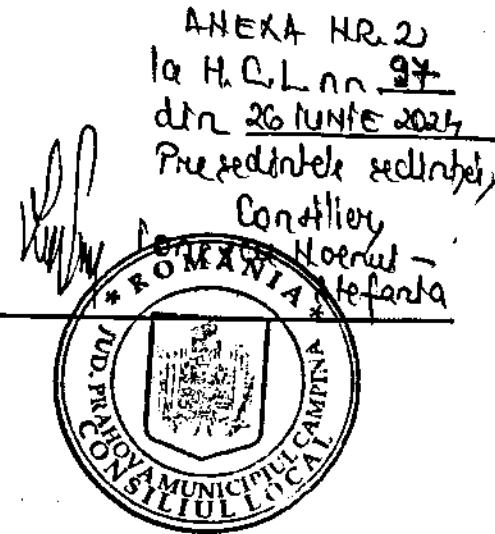 ANEXA NR. 2
la H.C.L. nr. 97
din 26 IUNIE 2024
Președintele ședinței,
Consilier,
Ștefania
* ROMÂNIA *
JUD. PRAHOVA MUNICIPIUL CAMPINA
CONSILIUL LOCAL